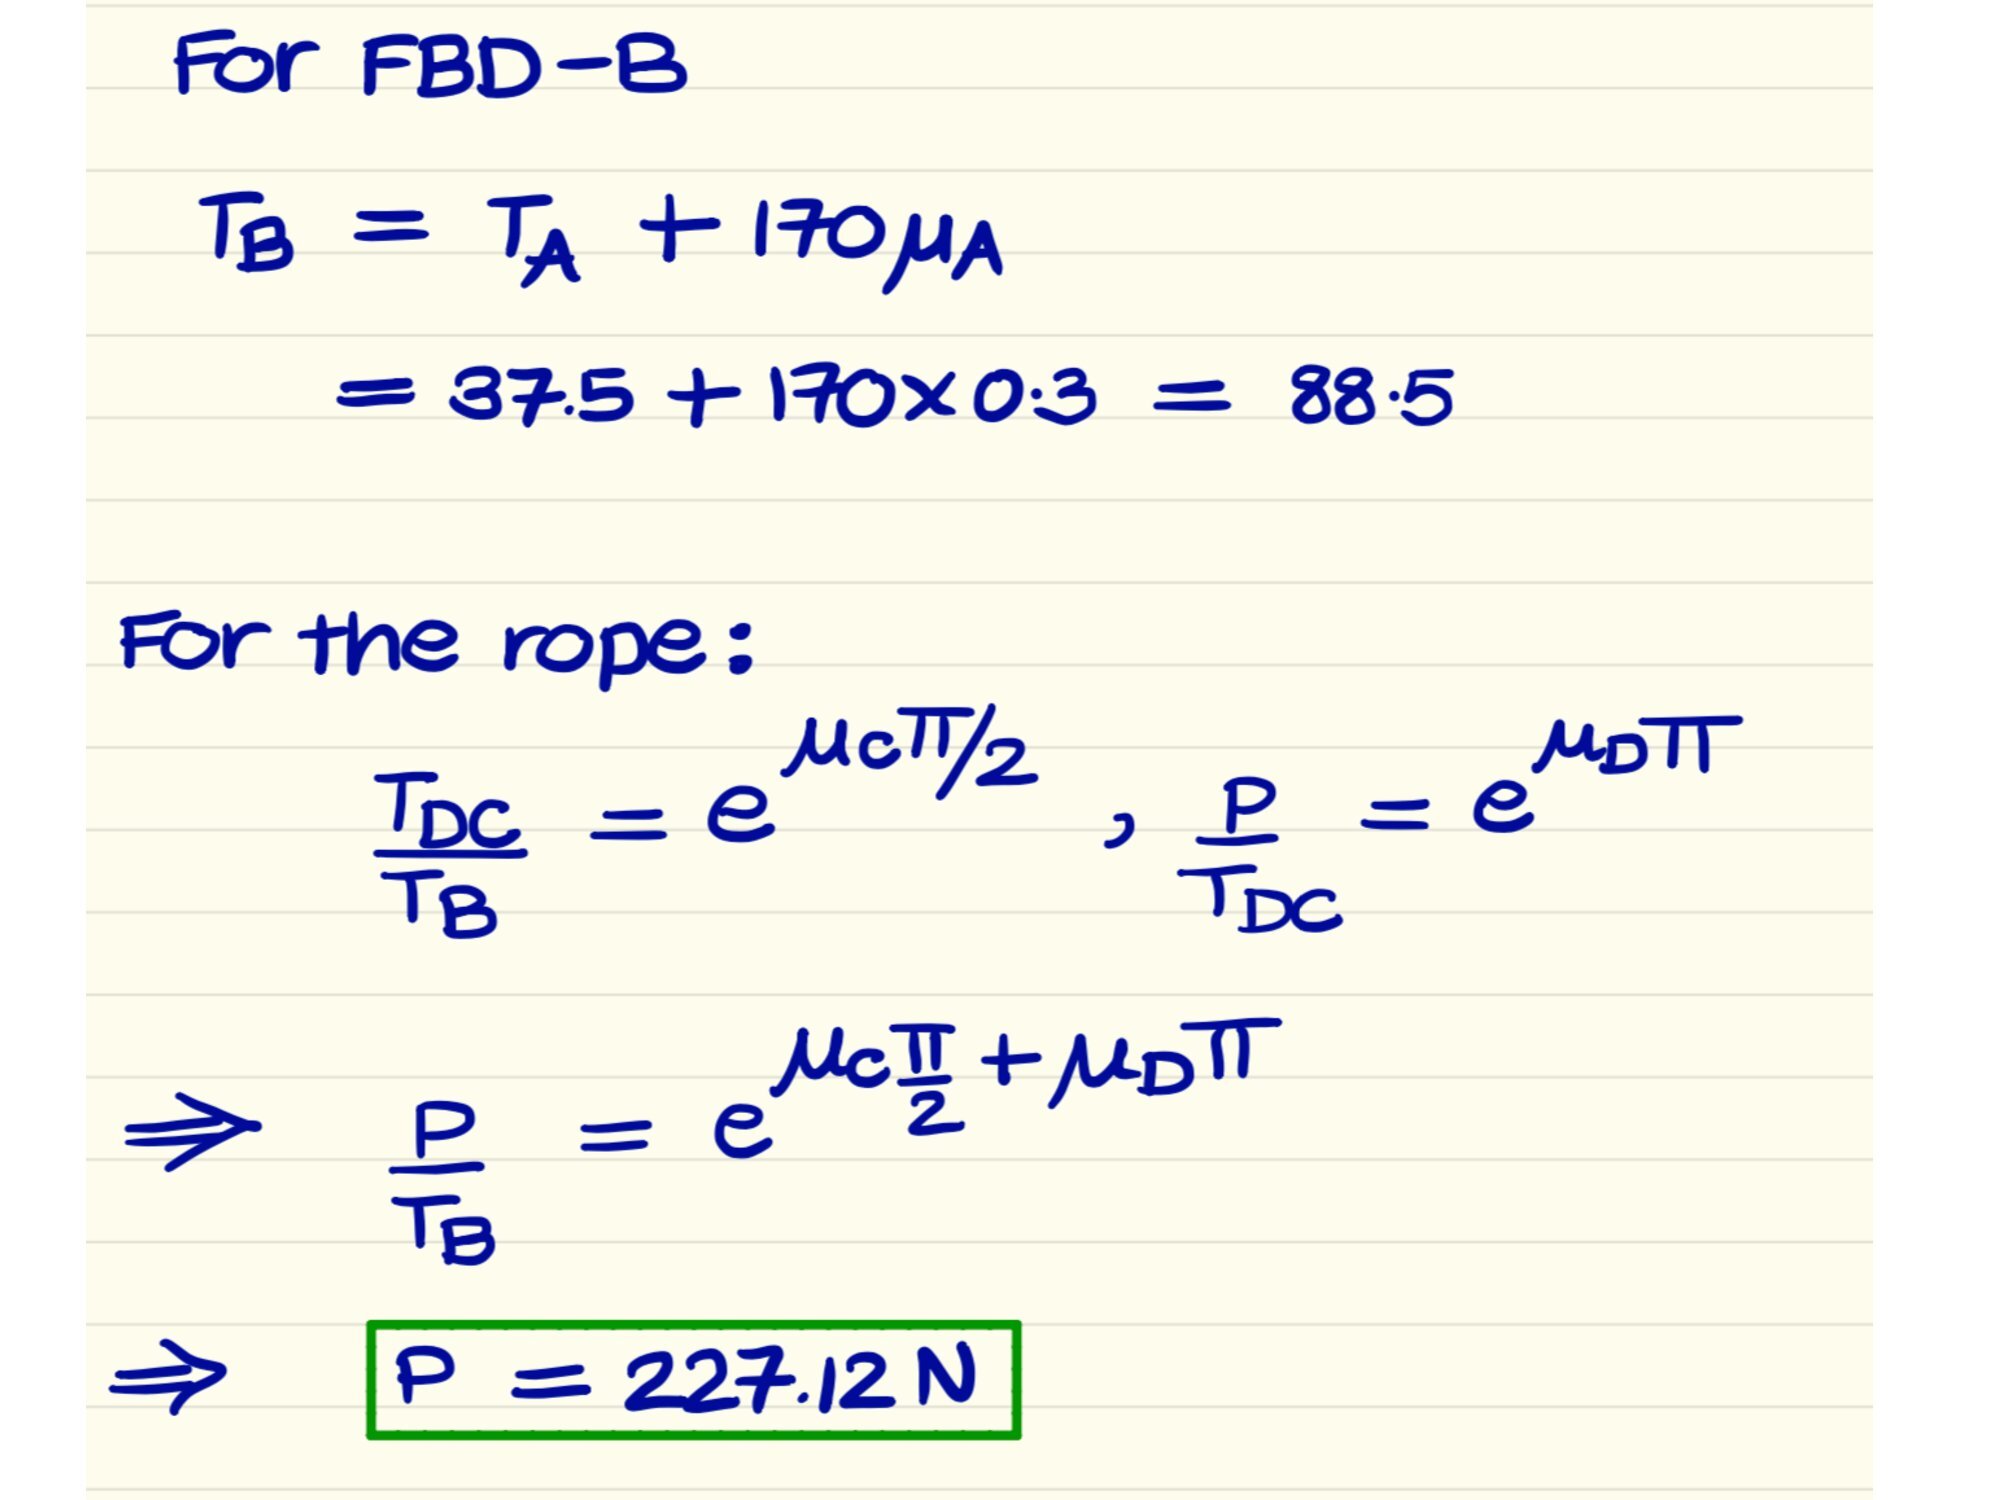 For FBD-B
T_B = T_A + 170 μ_A
= 37.5 + 170 × 0.3 = 88.5
For the rope:
T_DC / T_B = e^(μ_C π/2) , P / T_DC = e^(μ_D π)
⇒ P / T_B = e^(μ_C π/2 + μ_D π)
⇒ P = 227.12 N